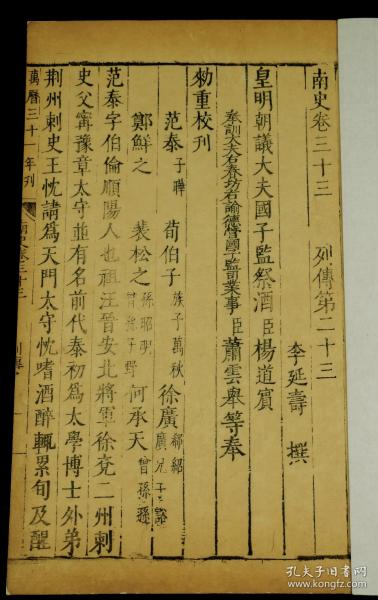 南史卷三十三　列傳第二十三
李延壽　撰
皇明朝議大夫國子監祭酒臣楊道賓
奉訓大夫右春坊右諭德管國子監司業事臣蕭雲舉等奉
勑重校刊
范泰子曄　荀伯子族子萬秋　徐廣郗紹　廣兄子豁
鄭鮮之　裴松之孫昭明　曾孫子野　何承天曾孫遜
范泰字伯倫順陽人也祖汪晉安北將軍徐兗二州刺
史父甯豫章太守並有名前代泰初爲太學博士外弟
荊州刺史王忱請爲天門太守忱嗜酒醉輒累旬及醒
萬曆三十年刊
南史卷三十三
孔夫子旧书网
kongfz.com